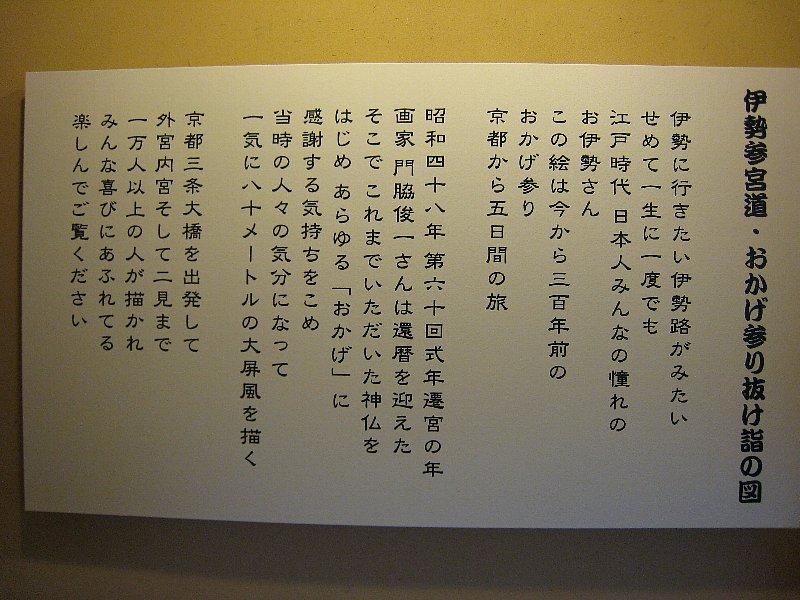 伊勢参宮道・おかげ参り抜け詣の図
伊勢に行きたい伊勢路がみたい
せめて一生に一度でも
江戸時代 日本人みんなの憧れの
お伊勢さん
この絵は今から三百年前の
おかげ参り
京都から五日間の旅
昭和四十八年 第六十回式年遷宮の年
画家 門脇俊一さんは還暦を迎えた
そこで これまでいただいた神仏を
はじめ あらゆる「おかげ」に
感謝する気持ちをこめ
当時の人々の気分になって
一気に八十メートルの大屏風を描く
京都三条大橋を出発して
外宮内宮そして二見まで
一万人以上の人が描かれ
みんな喜びにあふれてる
楽しんでご覧ください